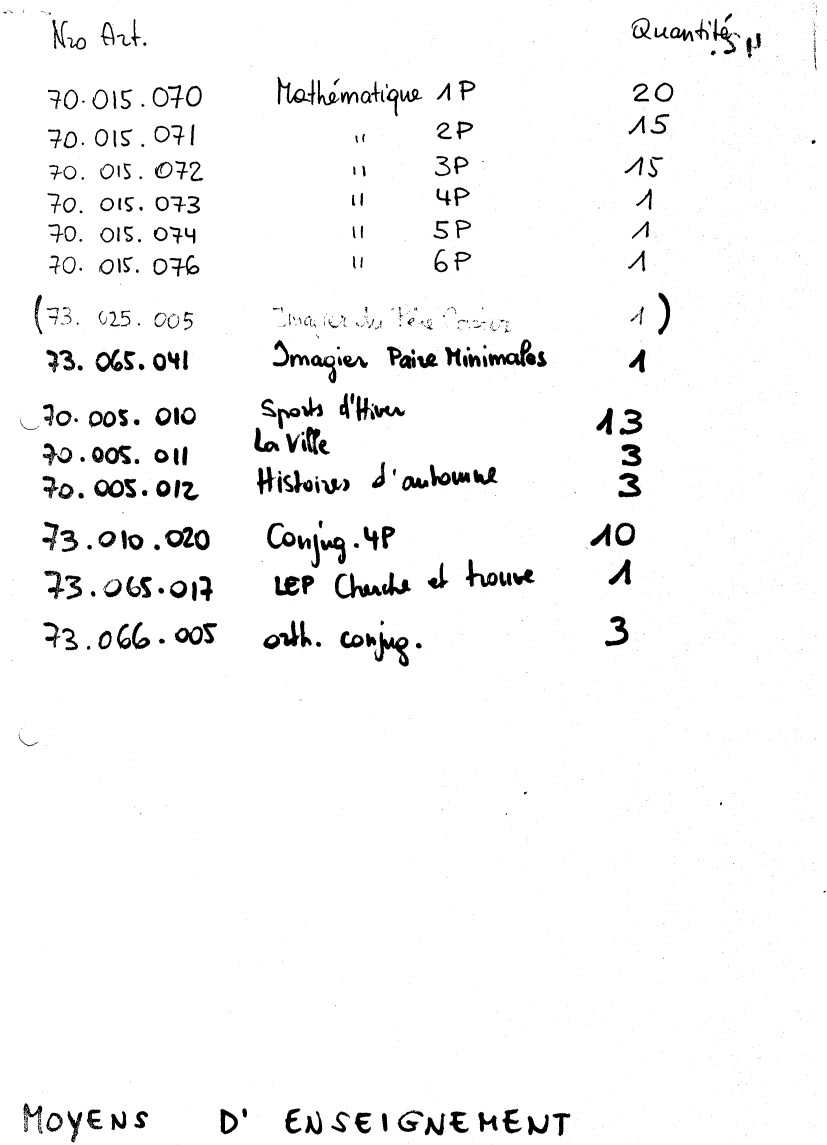 Nro Art. Quantités
70.015.070 Mathématique 1P 20
70.015.071 " 2P 15
70.015.072 " 3P 15
70.015.073 " 4P 1
70.015.074 " 5P 1
70.015.076 " 6P 1
(73.025.005 Imagier du Père 1)
73.065.041 Imagier Paire Minimales 1
70.005.010 Sports d'Hiver 13
70.005.011 La Ville 3
70.005.012 Histoires d'automne 3
73.010.020 Conjug. 4P 10
73.065.017 LEP Cherche et trouve 1
73.066.005 orth. conjug. 3
MOYENS D' ENSEIGNEMENT